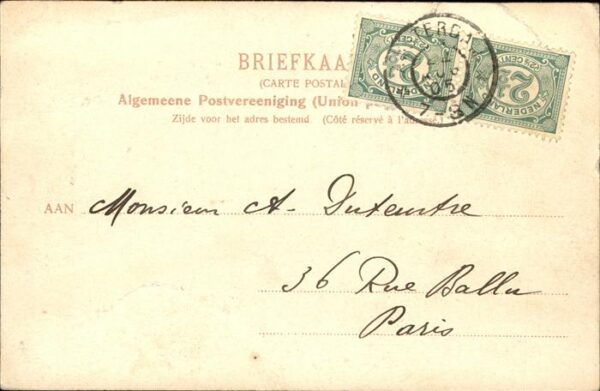 BRIEFKAA
(CARTE POSTAL
Algemeene Postvereeniging (Union p
Zijde voor het adres bestemd. (Côté réservé à l'adresse.)
NEDERLAND
2½ CENT
NEDERLAND
2½ CENT
TERDA
7-8N
AAN Monsieur A. Dutertre
36 Rue Ballu
Paris